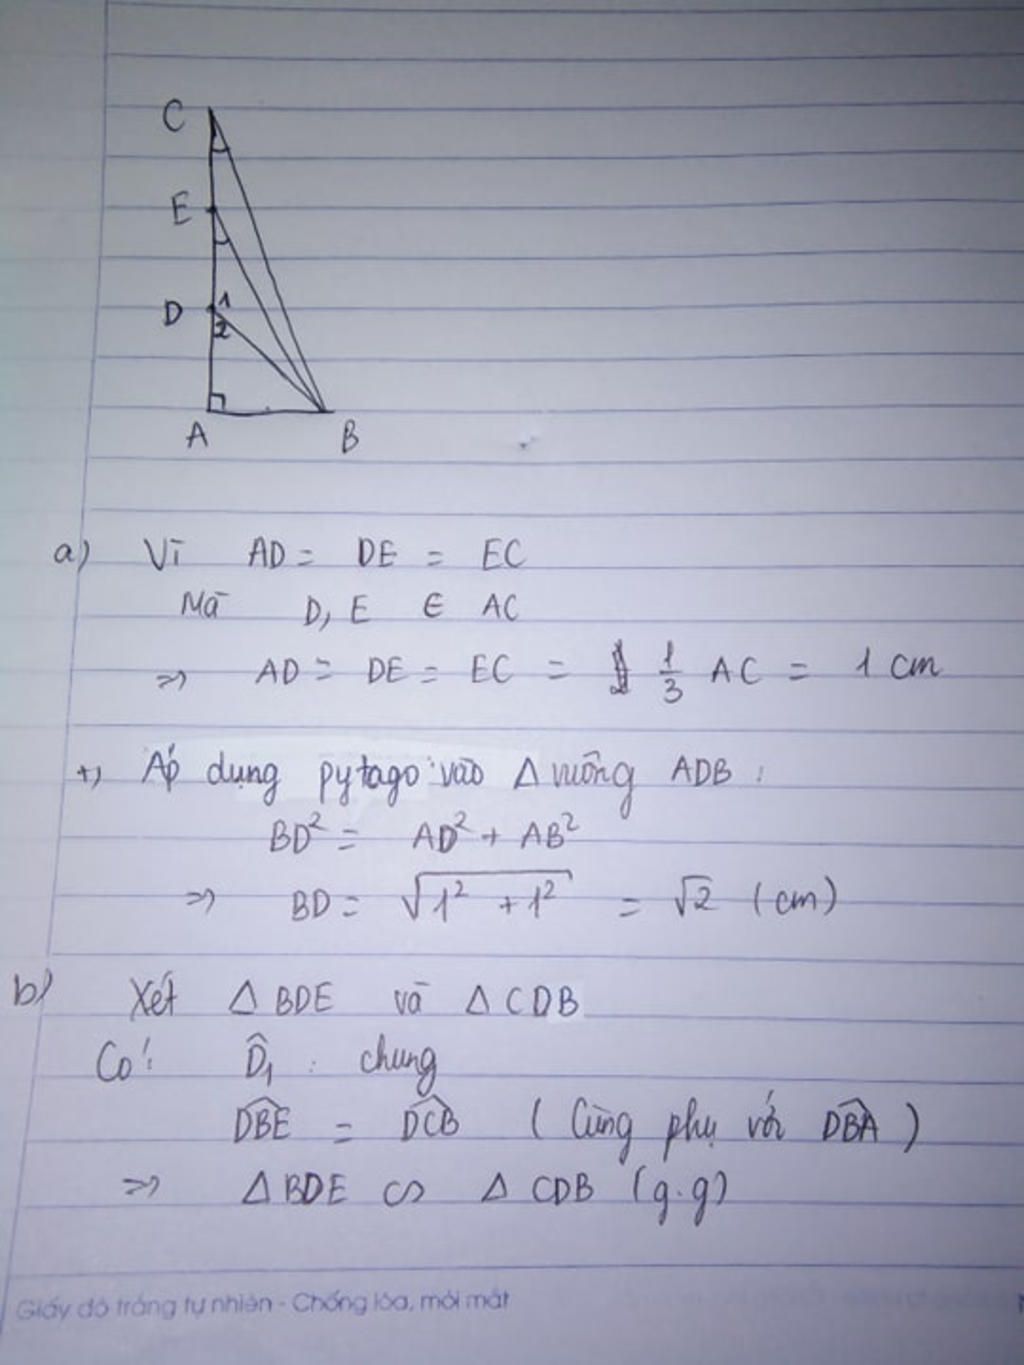 C
E
D 1
2
A B
a) Vì AD = DE = EC
Mà D, E ∈ AC
=> AD = DE = EC = 1/3 AC = 1 cm
+) Áp dụng pytago vào Δ vuông ADB :
BD² = AD² + AB²
=> BD = √(1² + 1²) = √2 (cm)
b) Xét Δ BDE và Δ CDB
Có: D̂₁ : chung
D̂BE = D̂CB ( Cùng phụ với D̂BA )
=> Δ BDE ∽ Δ CDB (g.g)
Giấy đỏ trắng tự nhiên - Chống lóa, mỏi mắt